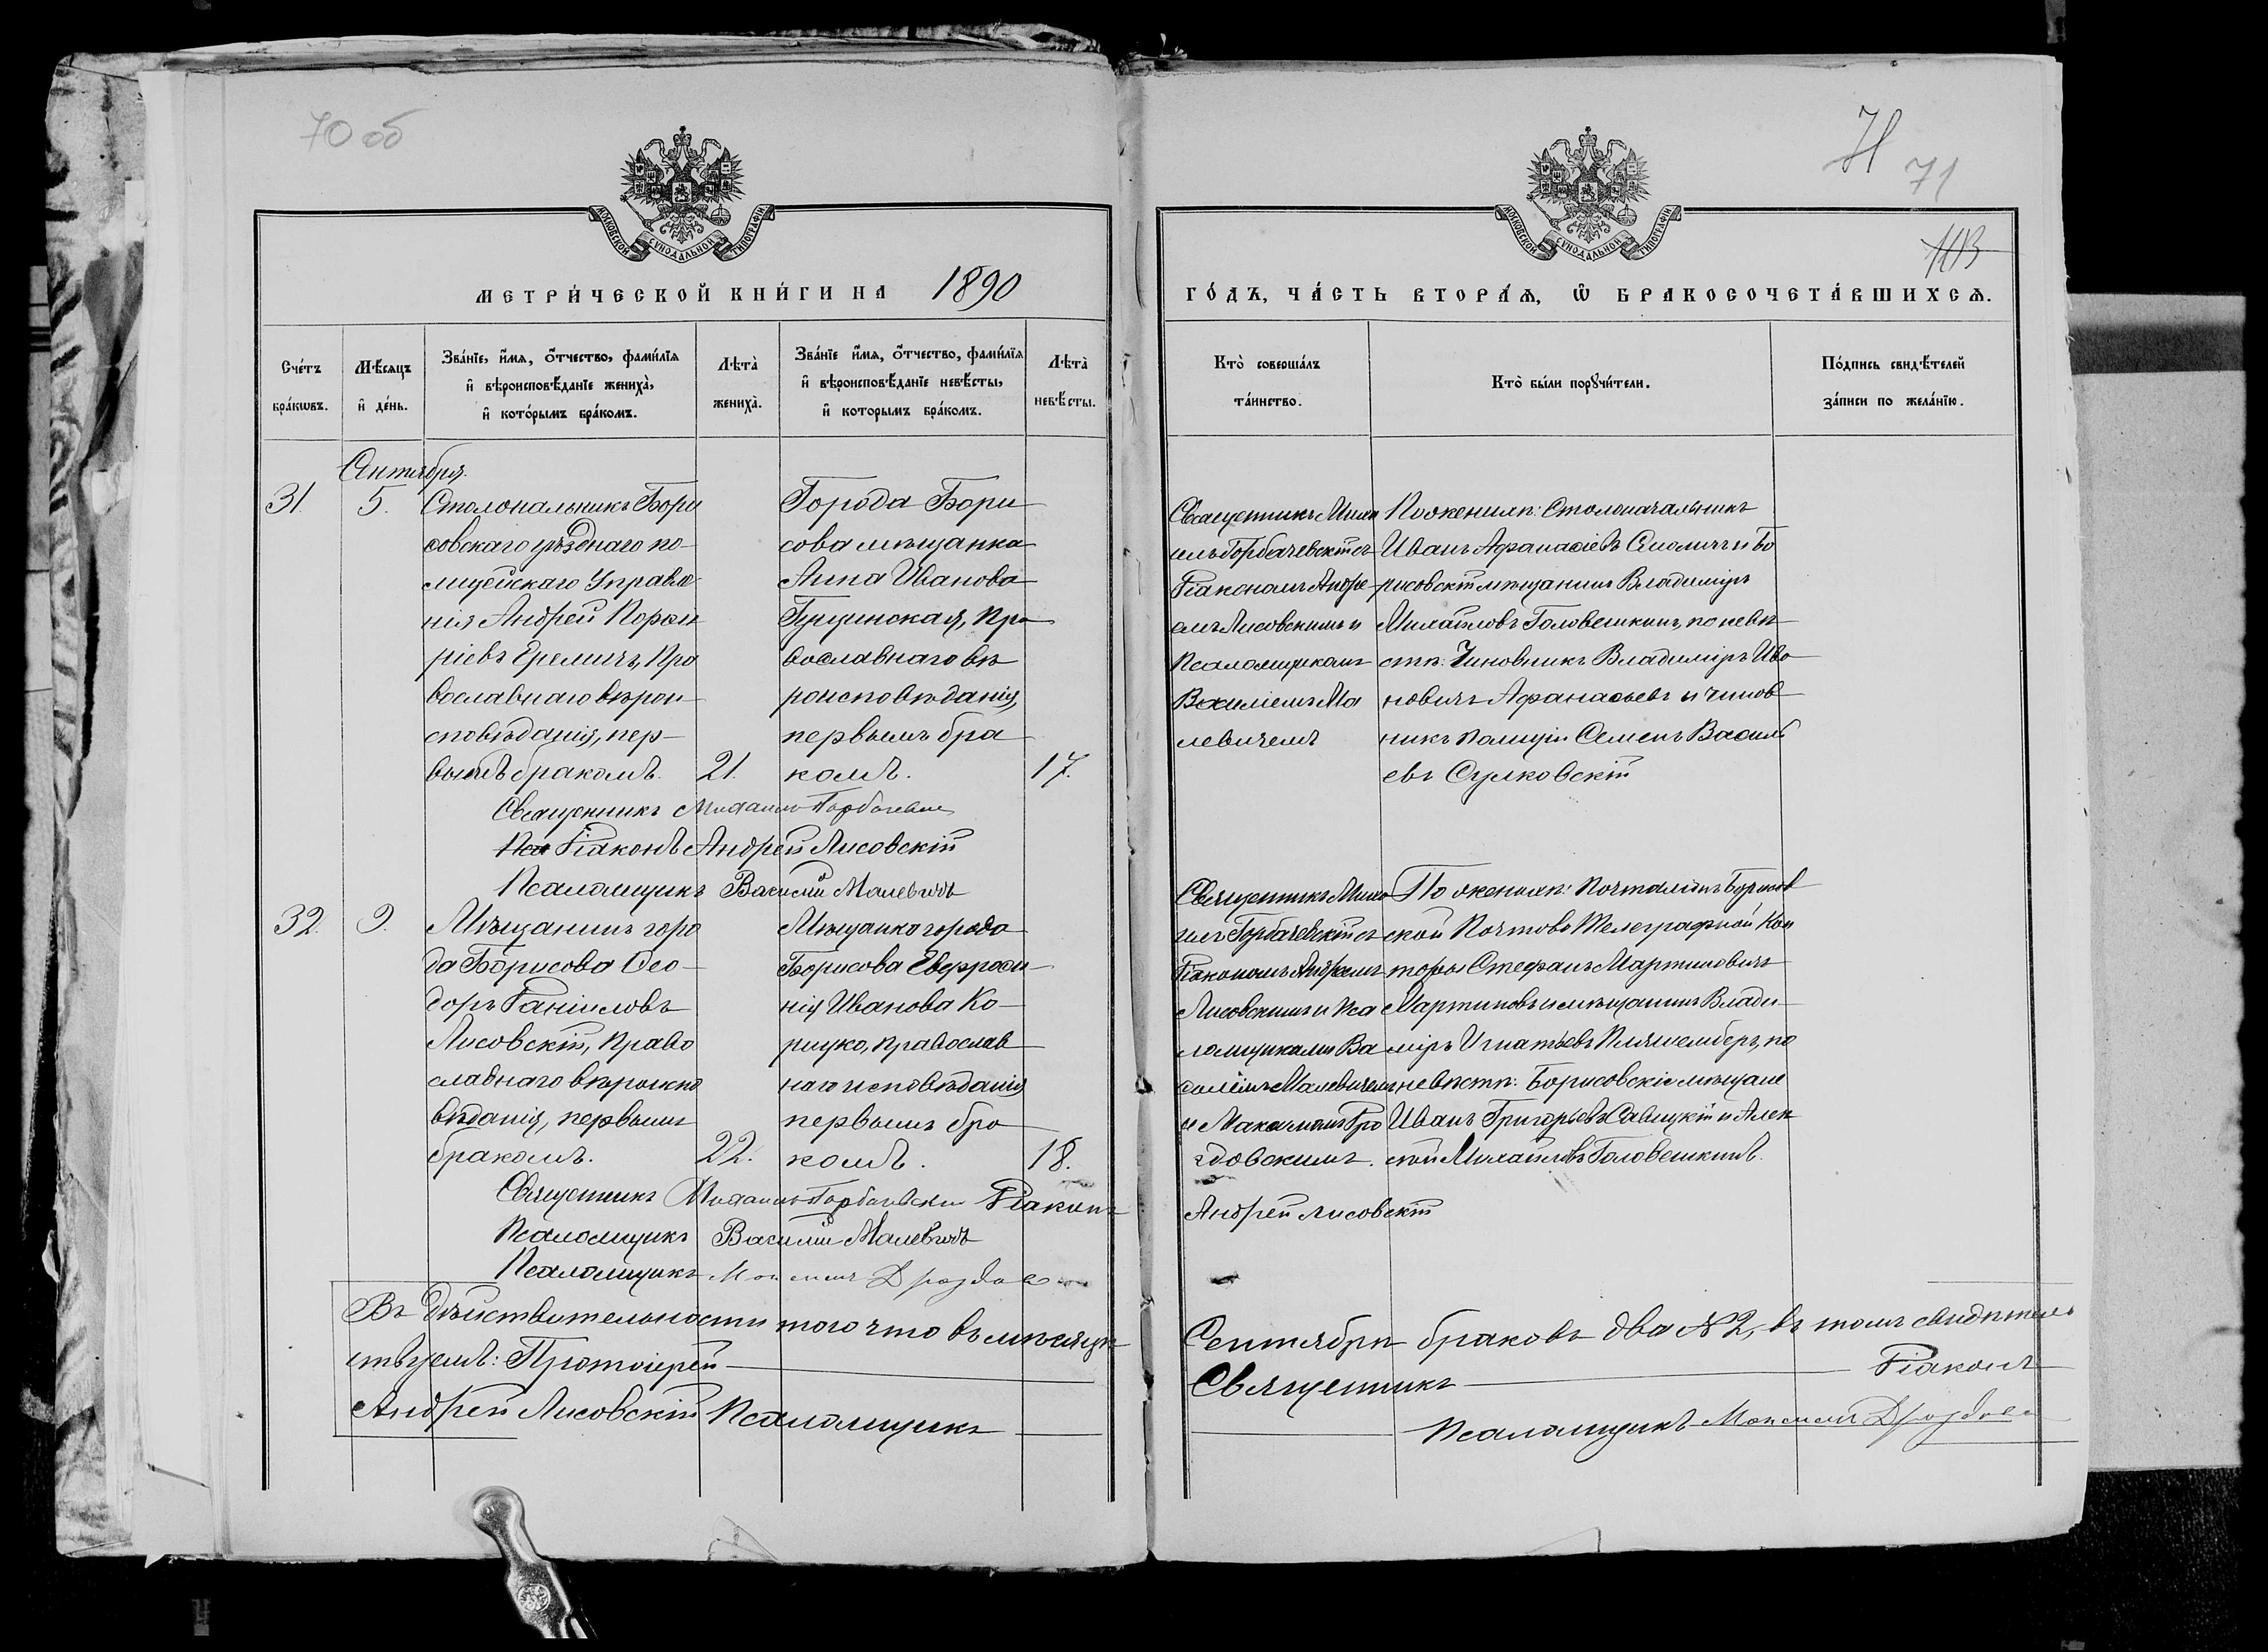 70 об
МОСКОВСКОЙ СУНОДАЛЬНОЙ ТИПОГРАФІИ
МЕТРИ́ЧЕСКОЙ КНИ́ГИ НА 1890
Сче́тъ бра́кѡвъ.
Мѣ́сяцъ и҆ де́нь.
Зва́нїе, и҆́мѧ, ѻ҆́тчество, фамі́лїѧ и҆ вѣроисповѣ́данїе женихà, и҆ кото́рымъ бра́комъ.
Лѣтà женихà.
Зва́нїе и҆́мѧ, ѻ҆́тчество, фамі́лїѧ и҆ вѣроисповѣ́данїе невѣ́сты, и҆ которымъ бра́комъ.
Лѣтà невѣ́сты.
Сентября.
31. 5.
Столоначальникъ Бори
совскаго уѣзднаго по-
лицейскаго Управле
нія Андрей Порфи
ріевъ Еремичъ, Пра
вославнаго вѣрои-
сповѣданія, пер-
вымъ бракомъ. 21.
Города Бори
сова мѣщанка
Анна Иванова
Гущинская, Пра
вославнаго вѣ
роисповѣданія,
первымъ бра
комъ. 17.
Священникъ Михаилъ Горбачевскій
Діаконъ Андрей Лисовскій
Псаломщикъ Василій Малевичъ
32. 9.
Мѣщанинъ горо
да Борисова Ѳео-
доръ Даніиловъ
Лисовскій, Право
славнаго вѣроиспо
вѣданія, первымъ
бракомъ. 22.
Мѣщанка города
Борисова Евфроси
нія Иванова Ко-
рицко, православ
наго исповѣданія
первымъ бра
комъ. 18.
Священникъ Михаилъ Горбачевскій Діаконъ
Псаломщикъ Василій Малевичъ
Псаломщикъ Максимъ Дроздов
Въ дѣйствительности того что въ мѣсяцѣ
ствуемъ: Протоіерей
Андрей Лисовскій Псаломщикъ
71
103
МОСКОВСКОЙ СУНОДАЛЬНОЙ ТИПОГРАФІИ
ГО́ДЪ, ЧА́СТЬ ВТОРА́Ѧ, Ѽ БРАКОСОЧЕТА́ВШИХСѦ.
Ктò соверша́лъ та́инство.
Ктò бы́ли порꙋчи́тели.
По́дпись свидѣ́телей за́писи по жела́нїю.
Священникъ Миха
илъ Горбачевскій съ
Діакономъ Андре
емъ Лисовскимъ и
Псаломщикомъ
Василіемъ Ма
левичемъ
По женихѣ: Столоначальникъ
Иванъ Афанасіевъ Смоличъ и Бо
рисовскій мѣщанинъ Владиміръ
Михайловъ Головешкинъ, по невѣ
стѣ: Чиновникъ Владиміръ Ива
новичъ Афанасьевъ и чинов
никъ полиціи Семенъ Василь
евъ Сулковскій
Священникъ Миха
илъ Горбачевскій съ
Діакономъ Андреемъ
Лисовскимъ и Пса
ломщиками Ва
силіемъ Малевичемъ
и Максимомъ Дро
здовскимъ.
По женихѣ: Почталіонъ Борисов
ской Почтово Телеграфной Кон
торы Стефанъ Мартиновичъ
Мартиновъ и мѣщанинъ Влади
міръ Игнатьевъ, по
невѣстѣ: Борисовскіе мѣщане
Иванъ Григорьевъ Савицкій и Алек
сѣй Михайловъ Головешкинъ.
Андрей Лисовскій
Сентябрѣ браковъ два №2, въ томъ свидѣтель
Священникъ Діаконъ
Псаломщикъ Максимъ Дроздов